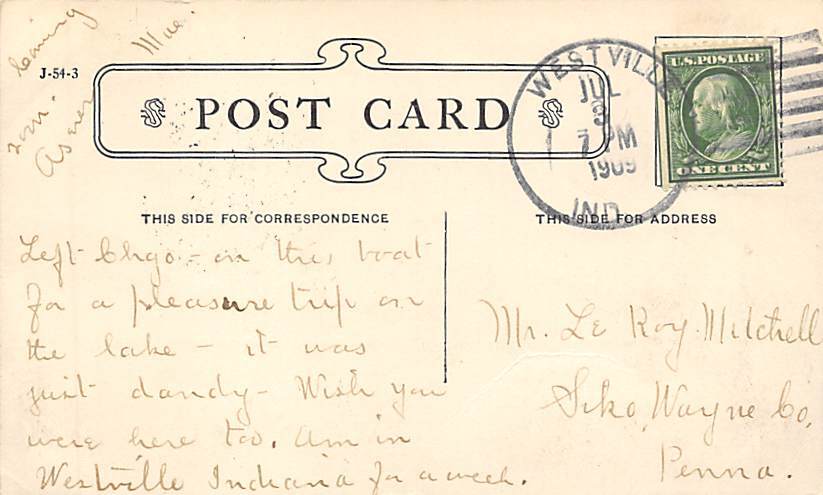 J-54-3
POST CARD
WESTVILLE
JUL
3
7 PM
1909
IND
U.S. POSTAGE
ONE CENT
THIS SIDE FOR CORRESPONDENCE
THIS SIDE FOR ADDRESS
Left Chgo - on this boat
for a pleasure trip on
the lake - it was
just dandy - Wish you
were here too. Am in
Westville Indiana for a week.
As ever
Mae
Mr. Le Roy Mitchell
Siko, Wayne Co,
Penna.